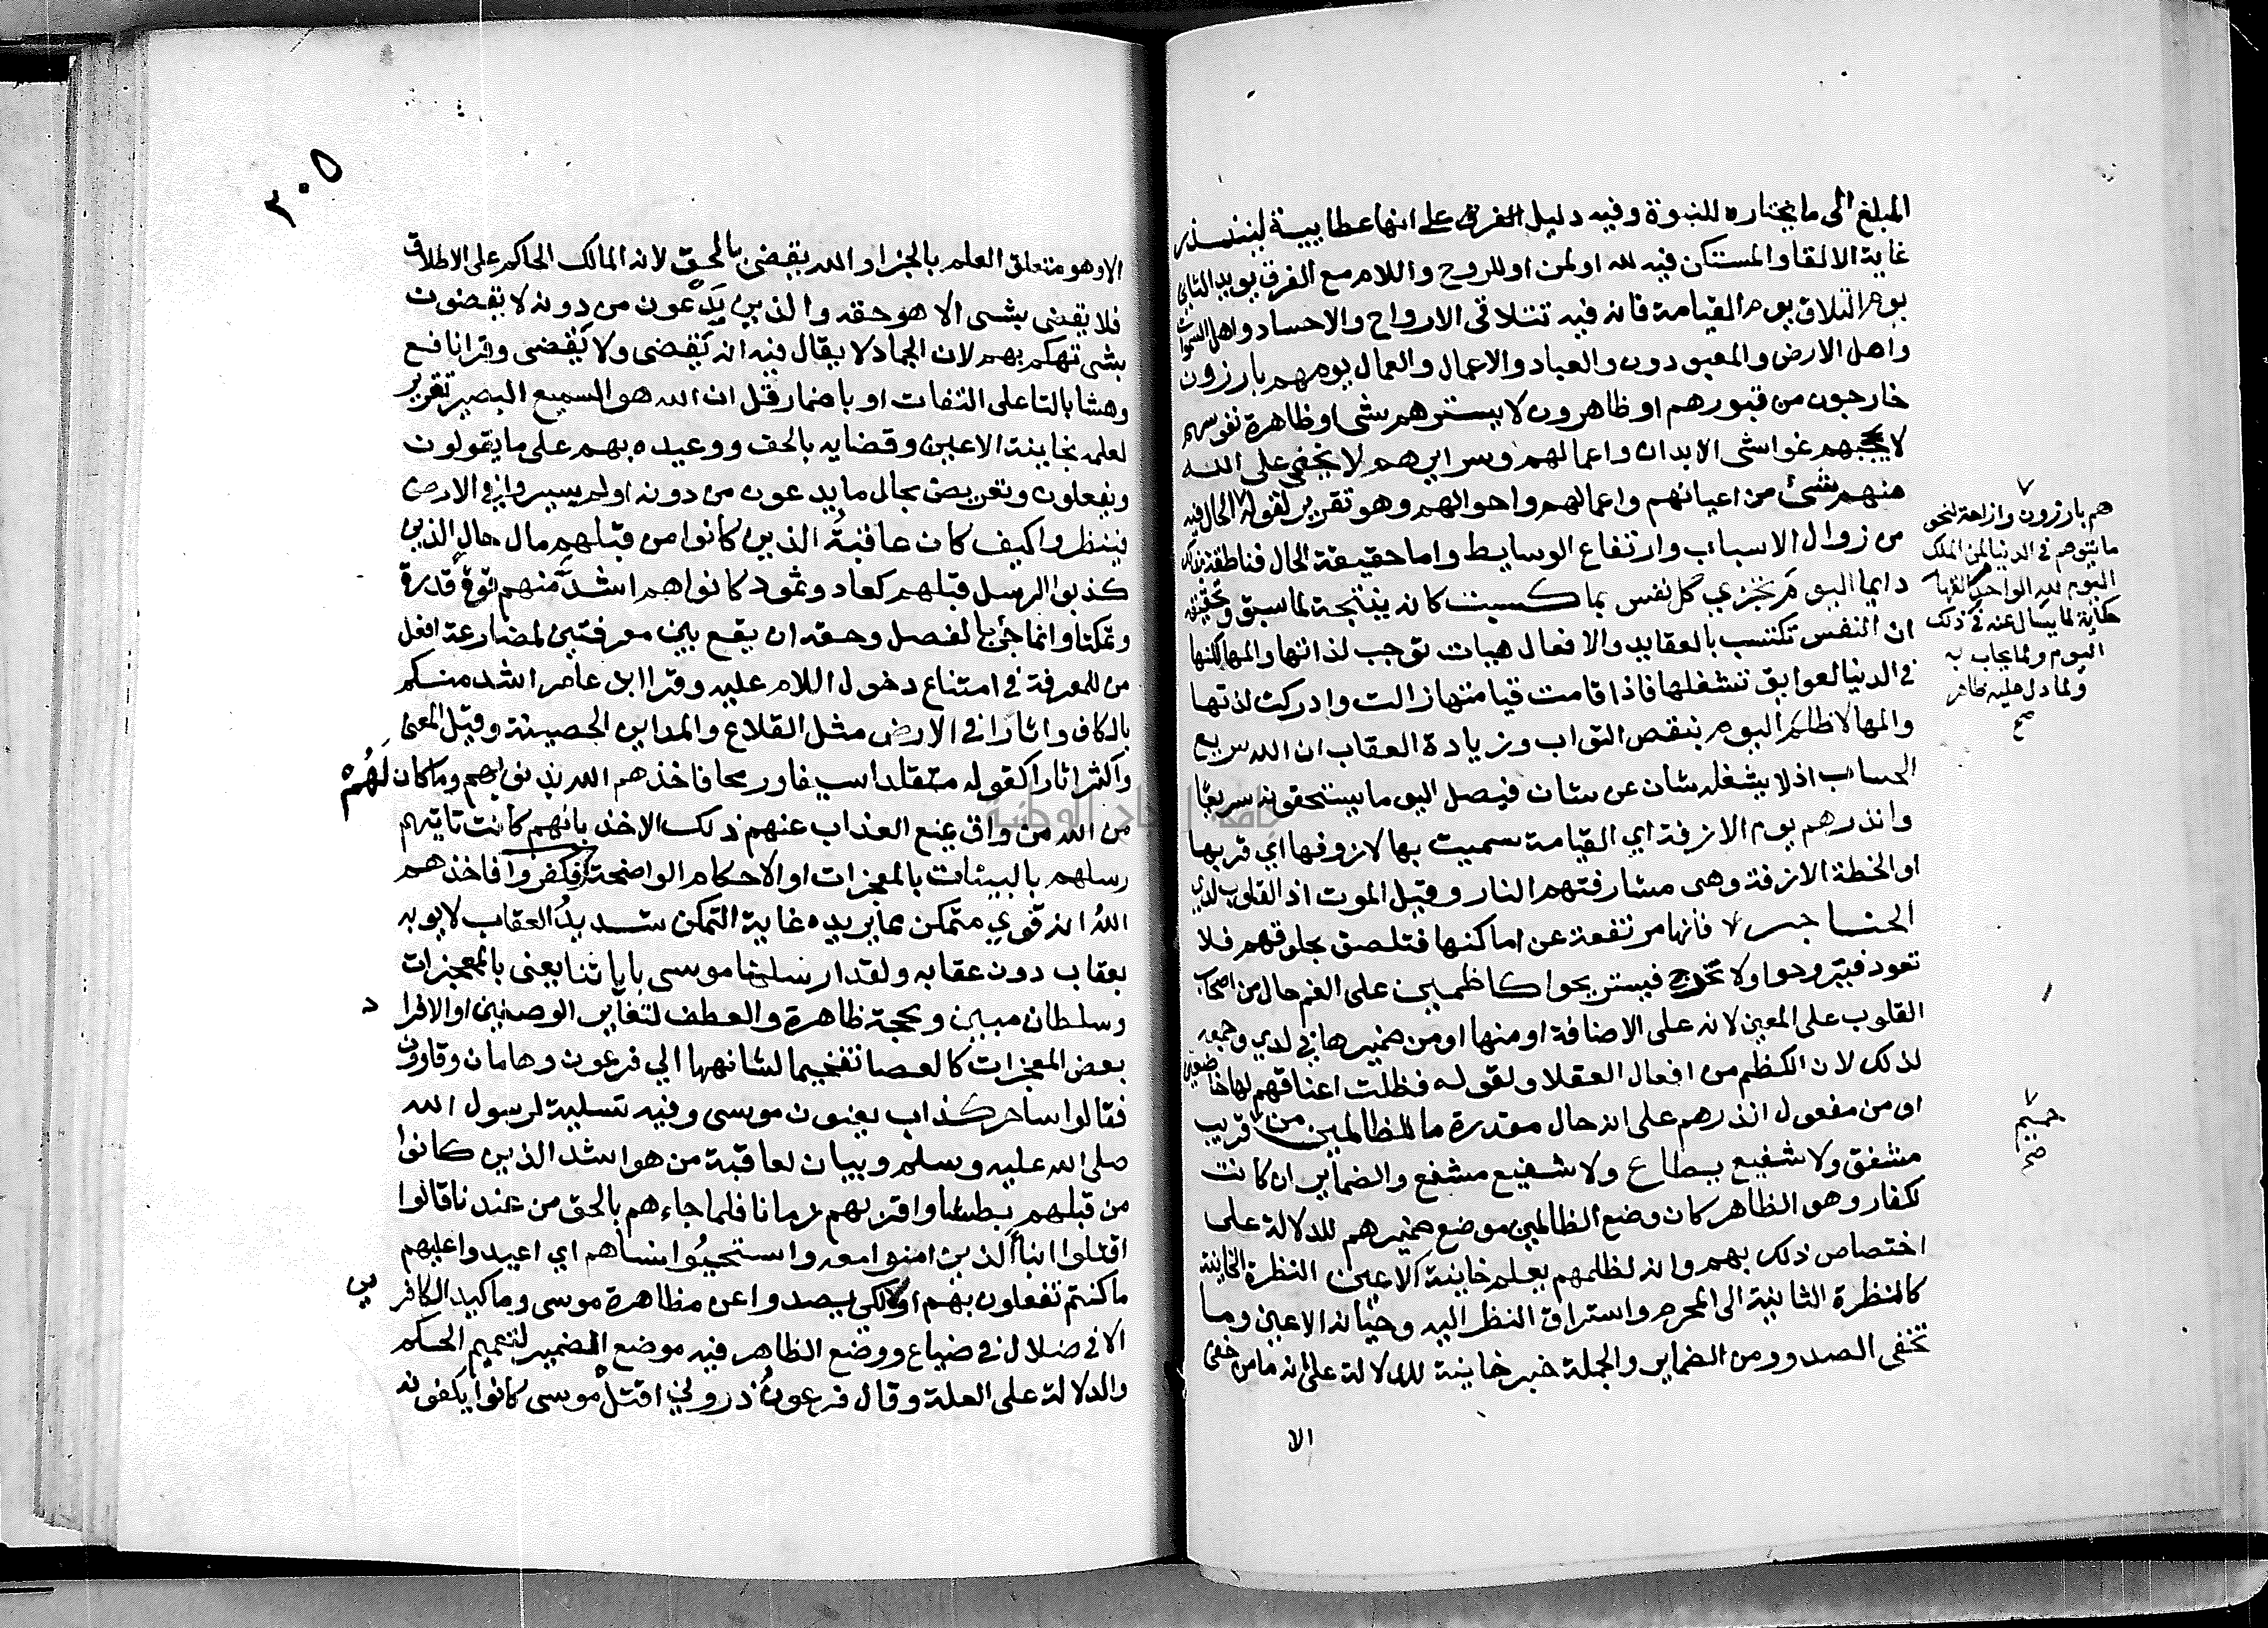 المبلغ الى ما يختاره للنبوة وفيه دليل الفرق على انها عطايية لينذر
غاية الالقا والمستكن فيه لله او لمن او للروح واللام مع الفرق يويد الثاني
يوم التلاق يوم القيامة فانه فيه تتلاقى الارواح والاجساد واهل السموات
واهل الارض والمعبودون والعباد والاعمال والعمال يوم هم بارزون
خارجون من قبورهم او ظاهرون لا يسترهم شي او ظاهرة نفوسهم
لا يحجبهم غواشى الابدان واعمالهم وسرايرهم لا يخفى على الله
منهم شئ من اعيانهم واعمالهم واحوالهم وهو تقرير لقوله الحال فيه
من زوال الاسباب وارتفاع الوسايط واما حقيقة الحال فناطقة بذلك
دايما اليوم تجزي كل نفس بما كسبت كانه ينتيجة لما سبق وتحقيقه
ان النفس تكتسب بالعقايد والافعال هيات توجب لذاتها والمها لكنها
في الدنيا لعوايق تشغلها فاذا قامت قيامتها زالت وادركت لذتها
والمها لا ظلم اليوم بنقص الثواب وزيادة العقاب ان الله سريع
الحساب اذ لا يشغله شان عن شان فيصل اليهم ما يستحقونه سريعا
وانذرهم يوم الازفة اي القيامة سميت بها لازوفها اي قربها
او الخطة الازفة وهى مشارفتهم النار وقيل الموت اذ القلوب لدي
الحناجر لا فانها مرتفعة عن اماكنها فتلصق بحلوقهم فلا
تعود فيتروحوا ولا تخرج فيستريحوا كاظمين على الغم حال من اصحاب
القلوب على المعين لانه على الاضافة او منها او من ضميرها في لدي وجمعه
لذلك لان الكظم من افعال العقلا ولقوله فظلت اعناقهم لها خاضعين
او من مفعول انذرهم على انه حال مقدرة ما للظالمين من قريب
مشفق ولا شفيع يطاع ولا شفيع مشفع والضماير ان كانت
للكفار وهو الظاهر كان وضع الظالمين موضع ضميرهم للدلالة على
اختصاص ذلك بهم وانه لظلمهم يعلم خاينة الاعين النظرة الخاينة
كالنظرة الثانية الى المحرم واستراق النظر اليه وخيانه الاعين وما
تخفى الصدوو من الضماير والجملة خبر خاينة للدلالة على انه ما من خفي
الا
هم بارزون وازاحة لنحو
ما يتوهم في الدنيا لمن الملك
اليوم لله الواحد القهار
حكاية لما يسال عنه في ذلك
اليوم ولما يجاب به
ولما دل عليه ظاهر
صح
حميم
صح
٣٠٥
الا وهو متعلق العلم بالجزا والله يقضى بالحق لانه المالك الحاكم على الاطلاق
فلا يقضى بشى الا هو حقه والذين يدعون من دونه لا يقضون
بشى تهكم بهم لان الجماد لا يقال فيه انه يقضى ولا يقضى وقرا نافع
وهشا بالتا على التفات او باضمار قل ان الله هو السميع البصير تقرير
لعلمه بخاينة الاعين وقضايه بالحق ووعيده بهم على ما يقولون
ويفعلون وتعريض بحال ما يدعون من دونه اولم يسيروا في الارض
فينظروا كيف كان عاقبة الذين كانوا من قبلهم مال حال الذين
كذبوا الرسل قبلهم كعاد وثمود كانوا هم اشد منهم قوة قدرة
وتمكنا وانما جئ بالفصل وحقه ان يقع بين معرفتين لمضارعة افعل
من للمعرفة في امتناع دخول اللام عليه وقرا ابن عامر اشد منكم
بالكاف واثارا في الارض مثل القلاع والمداين الحصينة وقيل المعنى
واكثر اثارا كقوله متقلدا سيفا ورمحا فاخذهم الله بذنوبهم وما كان لهم
من الله من واق يمنع العذاب عنهم ذلك الاخذ بانهم كانت تاتيهم
رسلهم بالبينات بالمعجزات او الاحكام الواضحة فكفروا فاخذهم
الله انه قوي متمكن مما يريده غاية التمكن شديد العقاب لا يوبه
بعقاب دون عقابه ولقد ارسلنا موسى باياتنا يعنى بالمعجزات
وسلطان مبين وحجة ظاهرة والعطف لتغاير الوصفين او الافرا
د
بعض المعجزات كالعصا تفخيما لشانهها الي فرعون وهامان وقارون
فقالوا ساحر كذاب يعنون موسى وفيه تسلية لرسول الله
صلى الله عليه وسلم وبيان لعاقبة من هو اشد الذين كانوا
من قبلهم بطشا واقربهم زمانا فلما جاءهم بالحق من عندنا قالوا
اقتلوا ابنا الذين امنوا معه واستحيوا نساهم اي اعيدوا عليهم
ما كنتم تفعلون بهم اولا كي يصدوا عن مظاهرة موسى وما كيد الكافر
ين
الا في ضلال في ضياع ووضع الظاهر فيه موضع الضمير لتعميم الحكم
والدلالة على العلة وقال فرعون ذروني اقتل موسى كانوا يكفونه